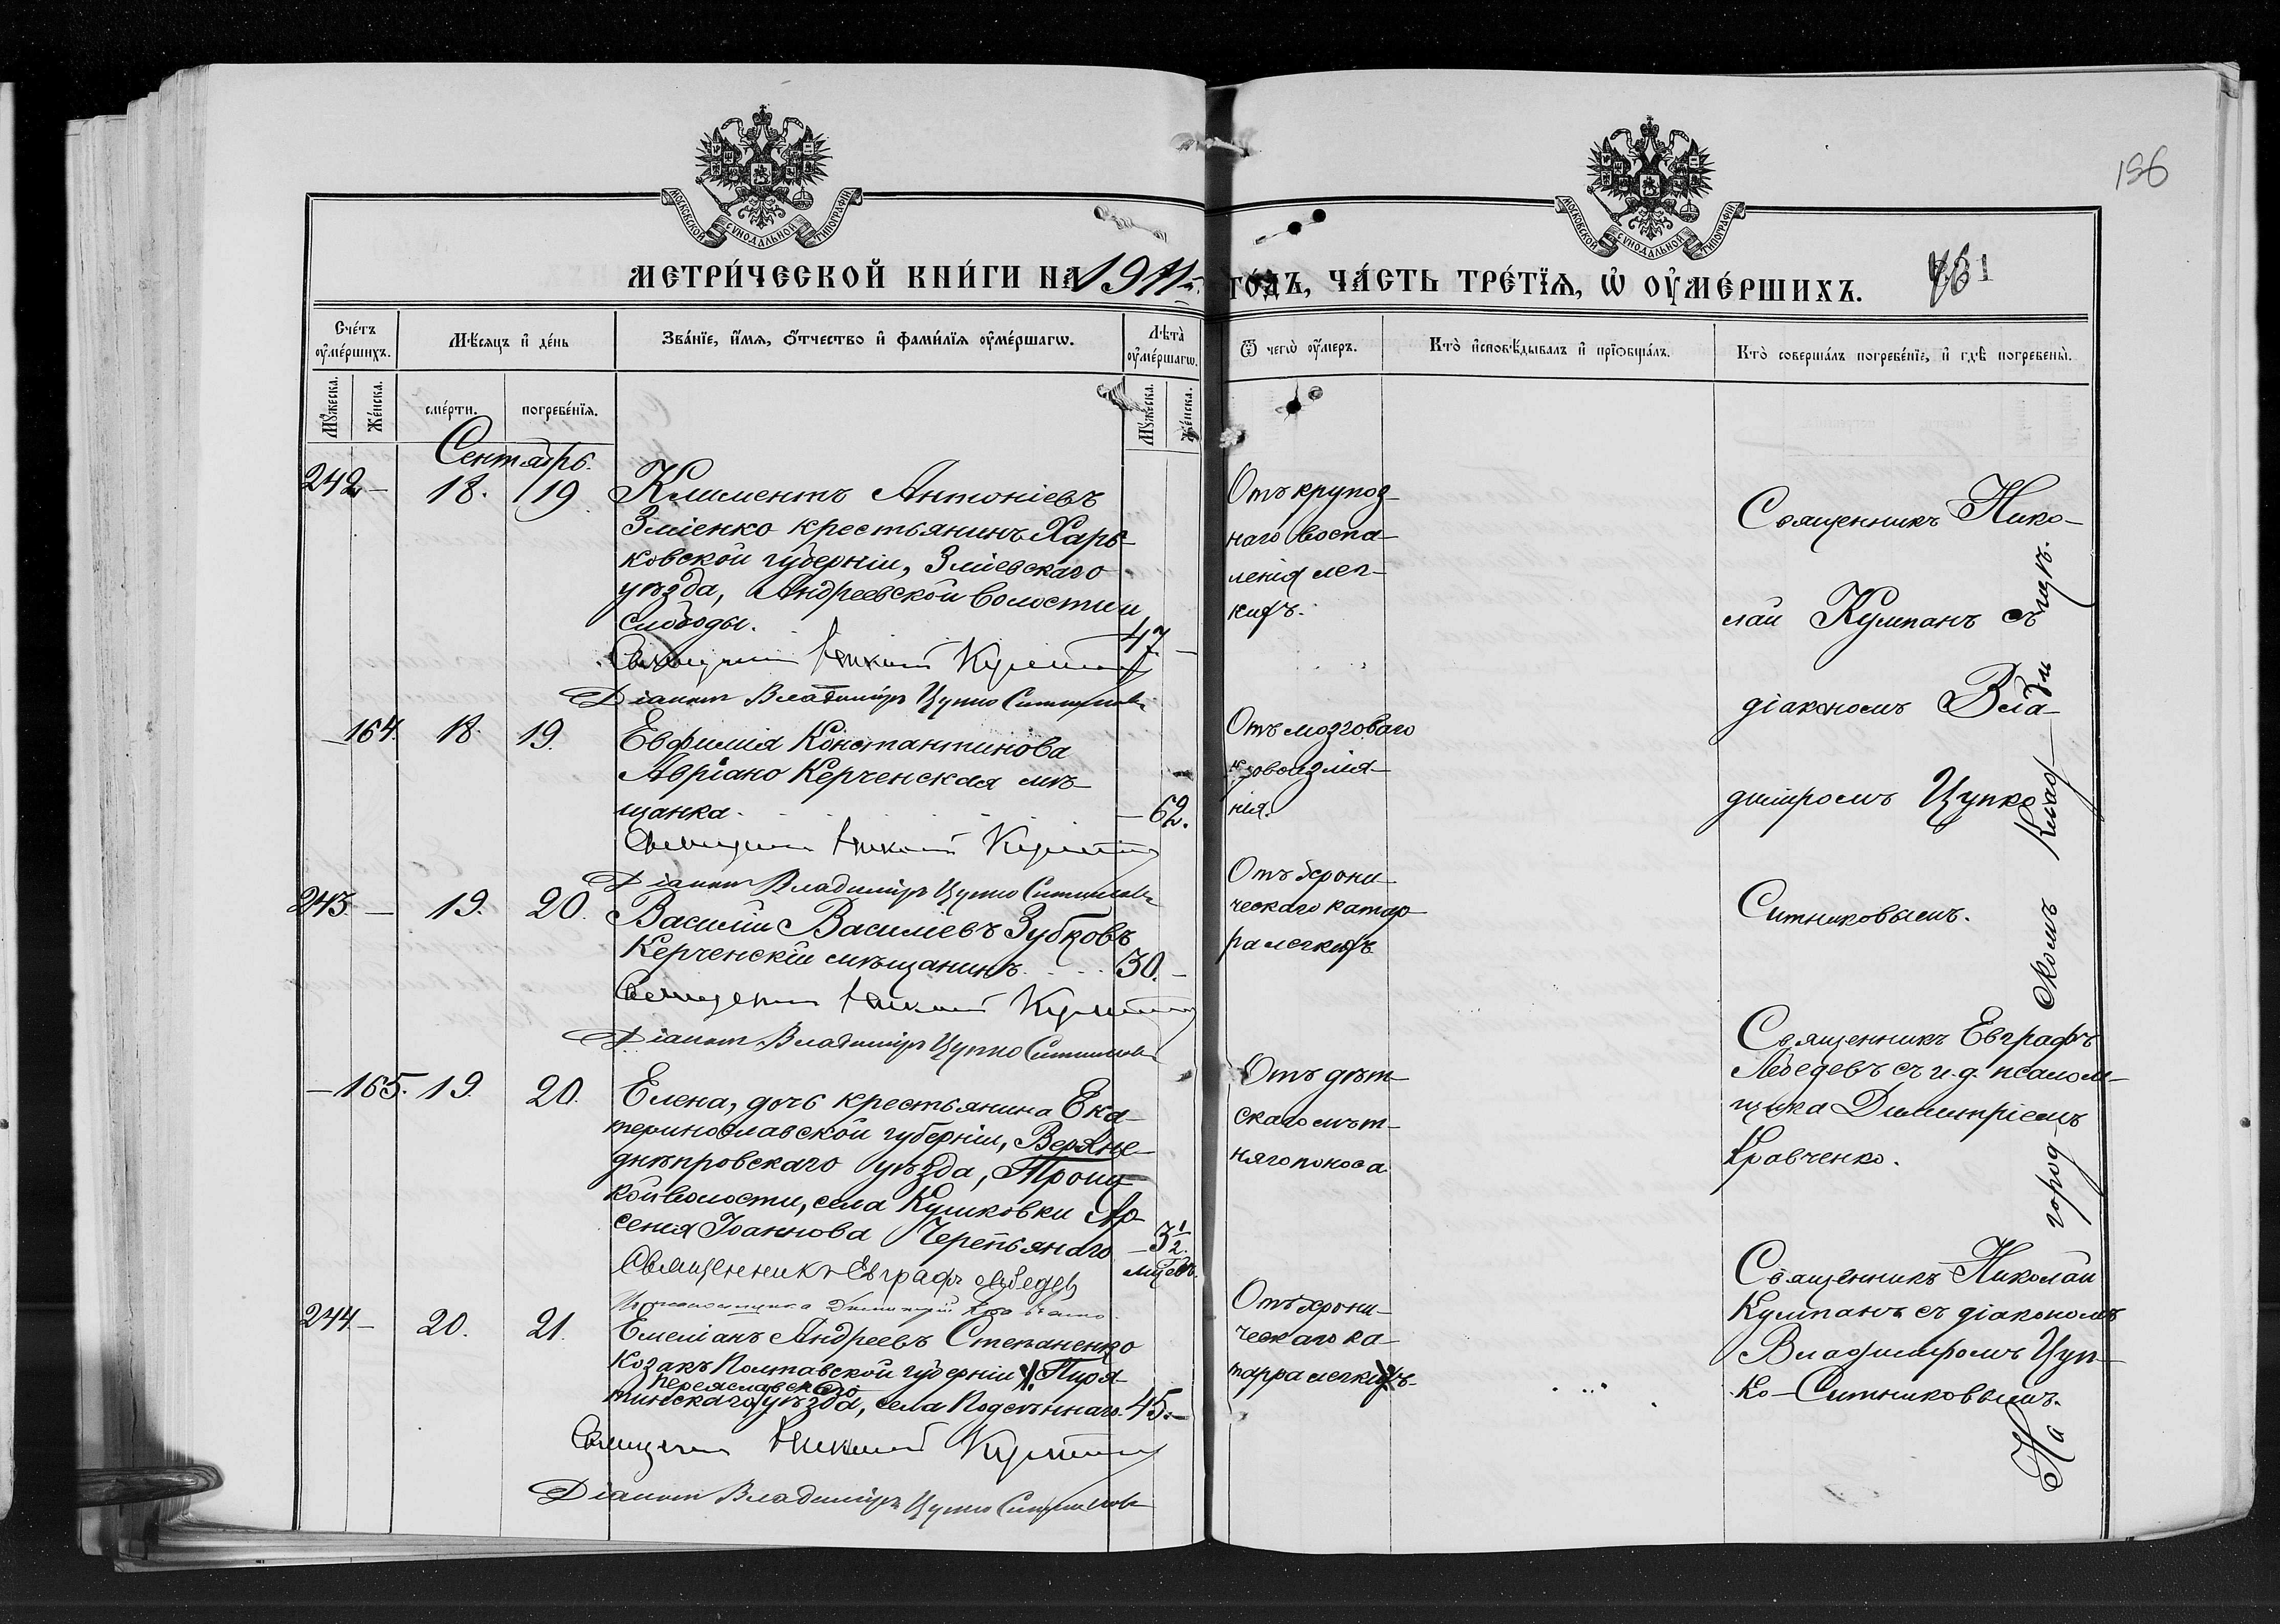 МОСКОВСКОЙ СѴНОДАЛЬНОЙ ТИПОГРАФІИ
МОСКОВСКОЙ СѴНОДАЛЬНОЙ ТИПОГРАФІИ
196
МЕТРИ́ЧЕСКОЙ КНИ́ГИ НА 1911 ГО́ДЪ, ЧА́СТЬ ТРЕ́ТЇѦ, Ѡ҆ ОУ҆МЕ́РШИХЪ.
Сче́тъ оу҆ме́ршихъ.
Мѣ́сѧцъ и҆ де́нь
Зва́нїе, и҆́мѧ, ѻ҆́тчество и҆ фами́лїѧ оу҆ме́ршагѡ.
Лѣ́та оу҆ме́ршагѡ.
Ѿ чегѡ̀ оу҆́меръ.
Кто̀ и҆сповѣ́дывалъ и҆ прїѡбща́лъ.
Кто̀ соверша́лъ погребе́нїе, и҆ гдѣ̀ погребены̀.
Мꙋ́жеска.
Же́нска.
сме́рти.
погребе́нїѧ.
Мꙋ́жеска.
Же́нска.
Сентябрь.
242 – 18. 19.
Климентъ Антоніевъ
Зміенко крестьянинъ Харь-
ковской губерніи, Зміевскаго
уѣзда, Андреевской волости и
слободы. 47 –
Священникъ Николай Кумпанъ
Діаконъ Владиміръ Цупко Ситниковъ
Отъ крупоз-
наго воспа-
ленія лег-
кихъ.
Священникъ Нико-
лай Кумпанъ съ
діакономъ Вла-
диміромъ Цупко
Ситниковымъ.
– 164. 18. 19.
Евфимія Константинова
Авріано Керченская мѣ-
щанка. – 62.
Священникъ Николай Кумпанъ
Діаконъ Владиміръ Цупко Ситниковъ
Отъ мозговаго
кровоизлія-
нія.
243. – 19. 20.
Василій Василіевъ Зубковъ
Керченскій мѣщанинъ 30. –
Священникъ Николай Кумпанъ
Діаконъ Владиміръ Цупко Ситниковъ
Отъ хрони-
ческаго катар-
ра легкихъ
– 165. 19. 20.
Елена, дочь крестьянина Ека-
теринославской губерніи, Верхне-
днѣпровскаго уѣзда, Троиц-
кой волости, села Куликовки Ар-
сенія Іоаннова Черепьянаго – 3 1/2
мѣсяц.
Священникъ Евграфъ Лебедевъ
И. д. псаломщика Димитрій Кравченко
Отъ дѣт-
скаго лѣт-
няго поноса
Священникъ Евграфъ
Лебедевъ съ и. д. псалом-
щика Димитріемъ
Кравченко.
244 – 20. 21.
Емеліанъ Андреевъ Степаненко
Козакъ Полтавской губерніи Пиря-
переяславскаго
тинскаго уѣзда, села Подсѣннаго 45. –
Священникъ Николай Кумпанъ
Діаконъ Владиміръ Цупко Ситниковъ
Отъ хрони-
ческаго ка-
тарра легкихъ
Священникъ Николай
Кумпанъ съ діакономъ
Владиміромъ Цуп-
ко-Ситниковымъ.
На город-
скомъ клад-
бищѣ.